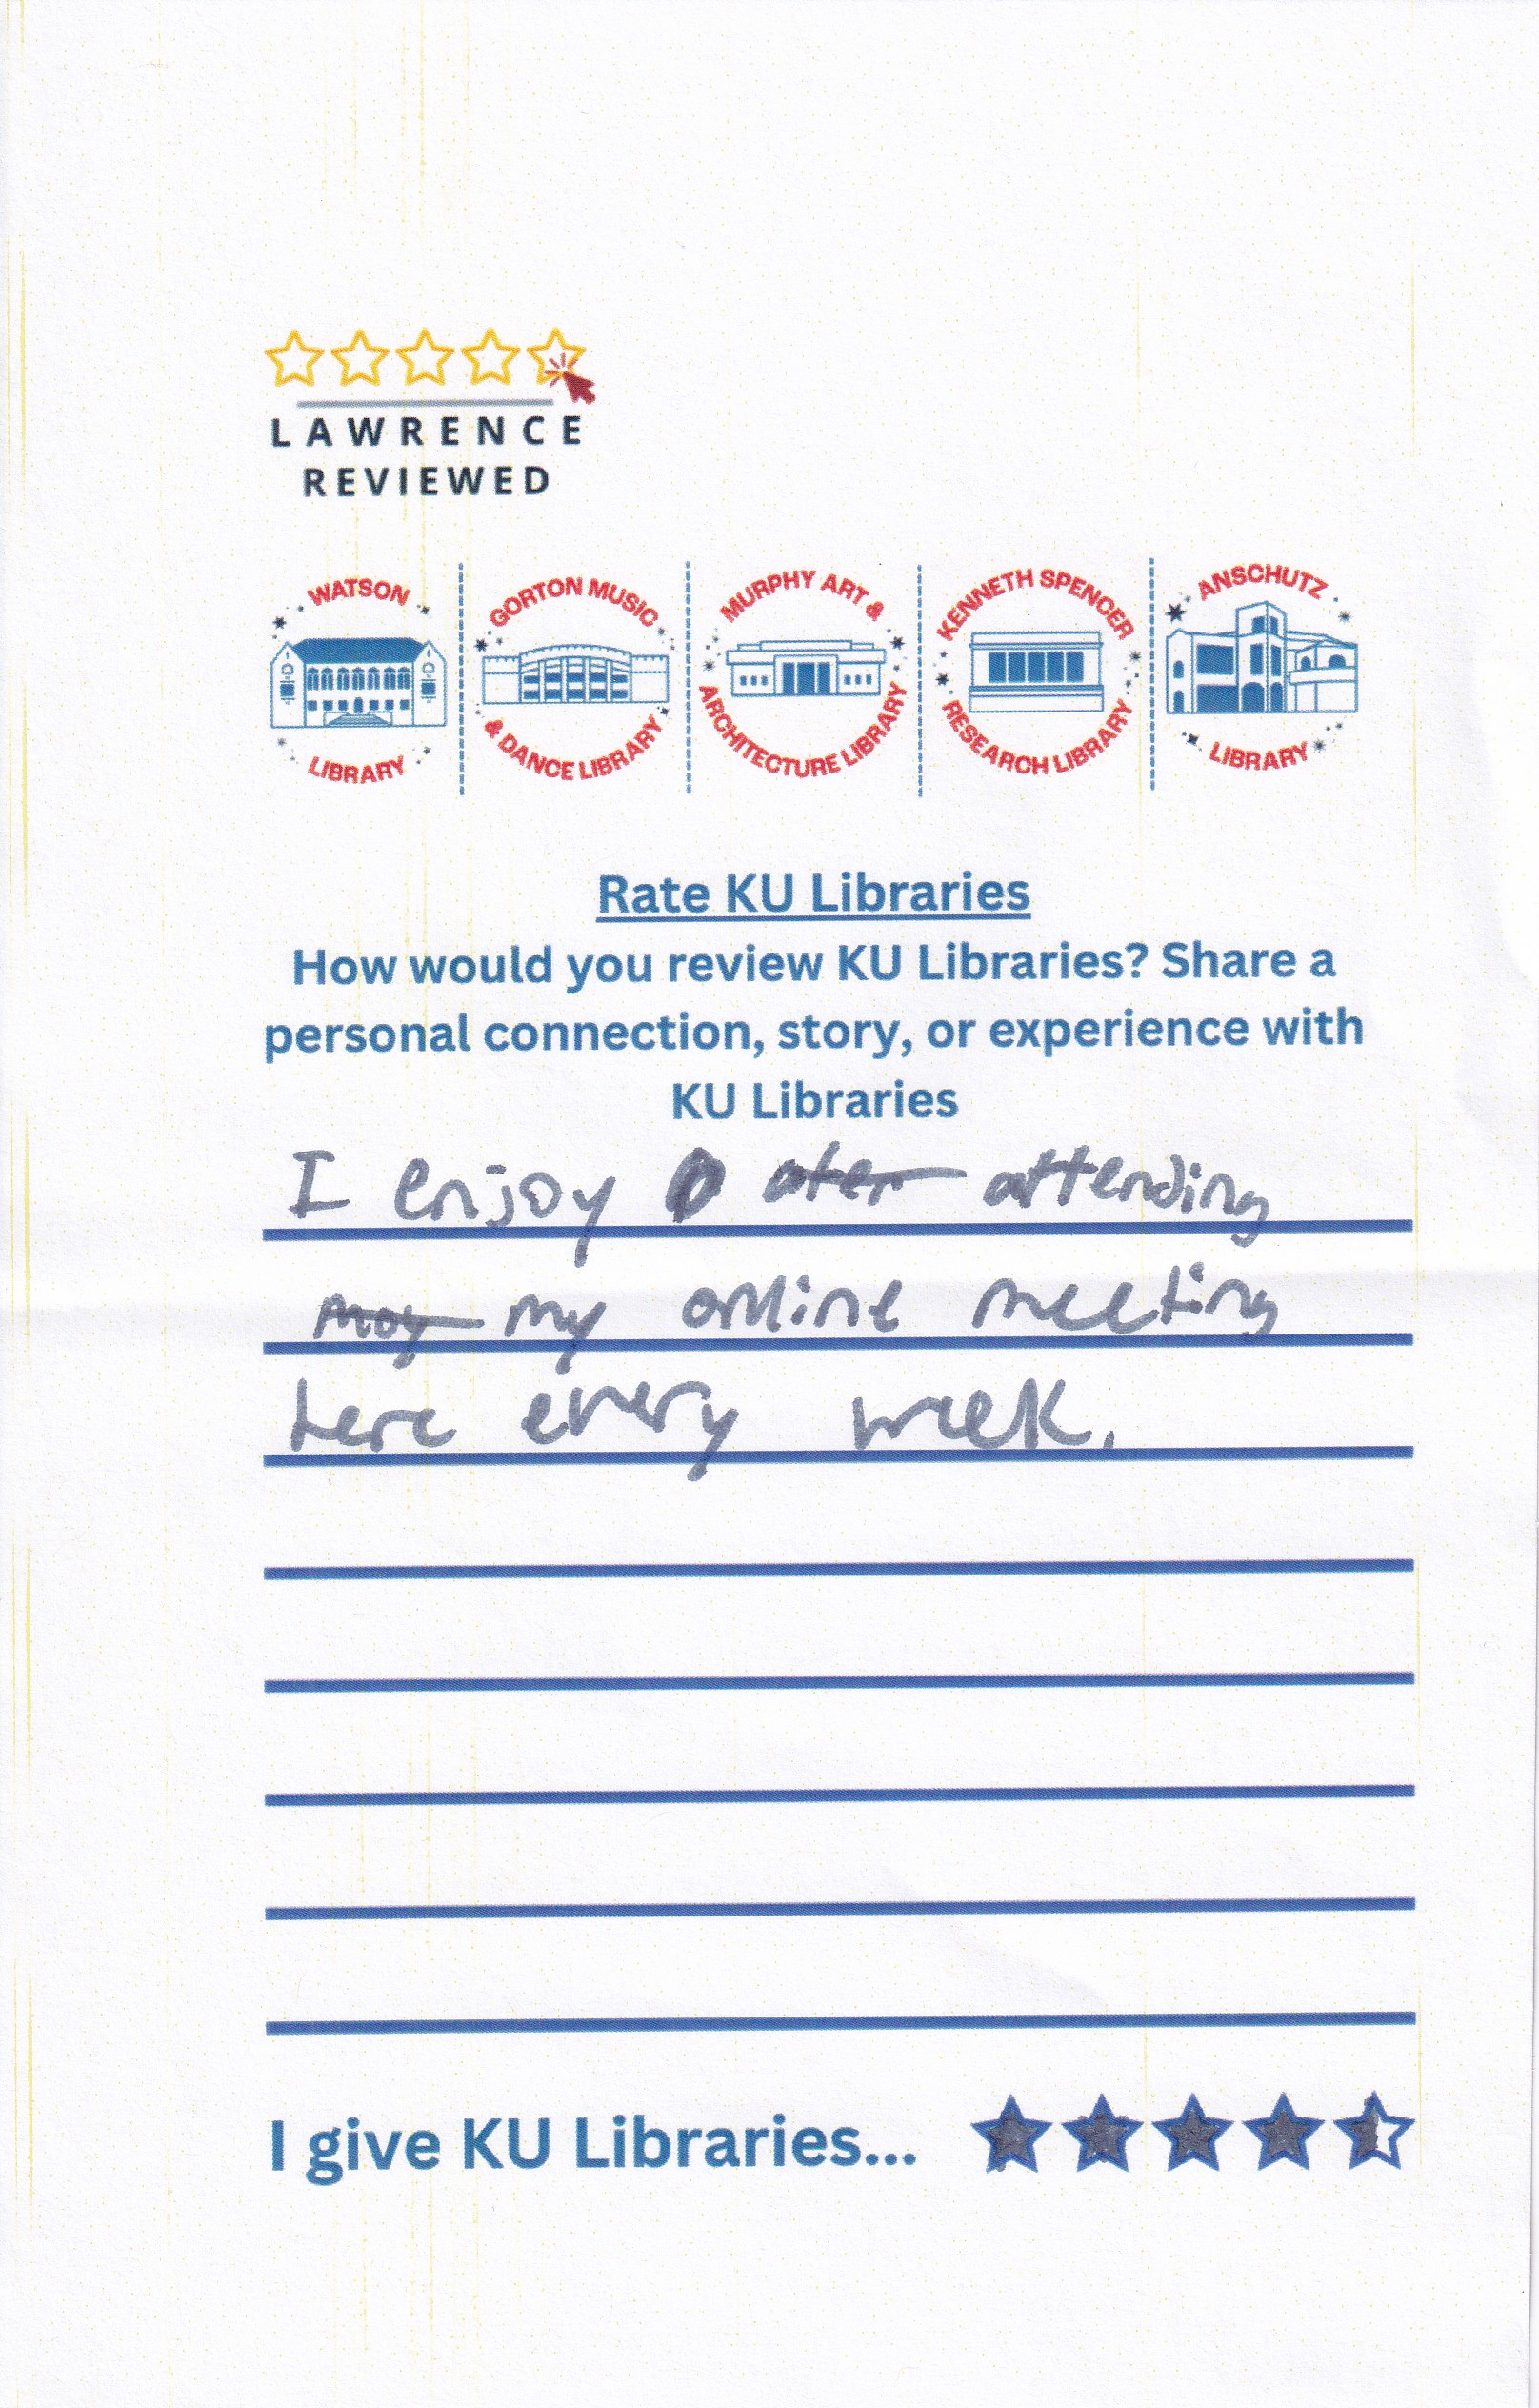 LAWRENCE
REVIEWED
WATSON LIBRARY
GORTON MUSIC & DANCE LIBRARY
MURPHY ART & ARCHITECTURE LIBRARY
KENNETH SPENCER RESEARCH LIBRARY
ANSCHUTZ LIBRARY
Rate KU Libraries
How would you review KU Libraries? Share a
personal connection, story, or experience with
KU Libraries
I enjoy attending
my online meeting
here every week.
I give KU Libraries...